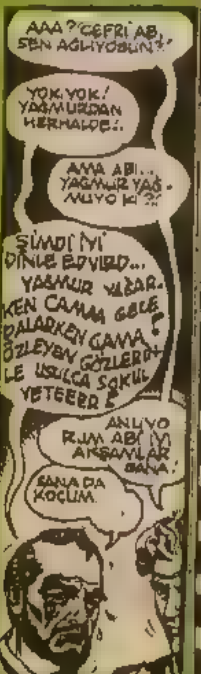 AAA? "CEFRİ AB,
SEN AĞLIYOSUN?"
YOK, YOK!
YAĞMURDAN
HERHALDE!.
AMA ABİ...
YAĞMUR YAĞ-
MUYO Kİ?!
ŞİMDİ İYİ
DİNLE EDVIRD...
YAĞMUR YAĞAR-
KEN CAMAA GELE
DALARKEN CAMA!
ÖZLEYEN GÖZLERİN-
LE USULCA SOKUL
YETEEER!
ANLIYO
RUM ABİ İYİ
AKŞAMLAR
SANA!
SANA DA
KOÇUM.